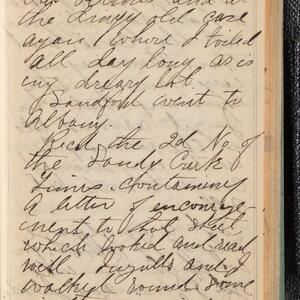 the dingy old
again where I toiled
all day long as is
my dreary lot.
Sandford went to
Albany.
Recd the 2d No of
the Sandy Creek
Times containing
a letter of encourage-
ment to that sheet
which looked and read
well. Ingalls and I
walked round some